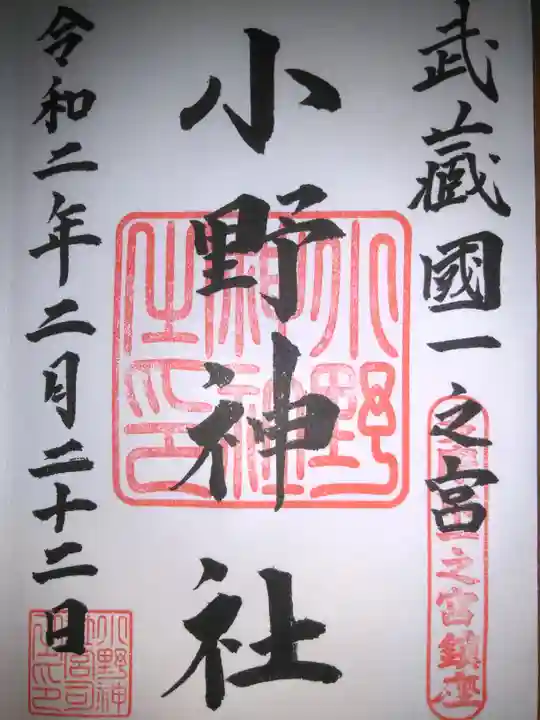 武藏國一之宮
小野神社
令和二年二月二十二日
小野
之宮鎮座
小野神
社宮司
之印